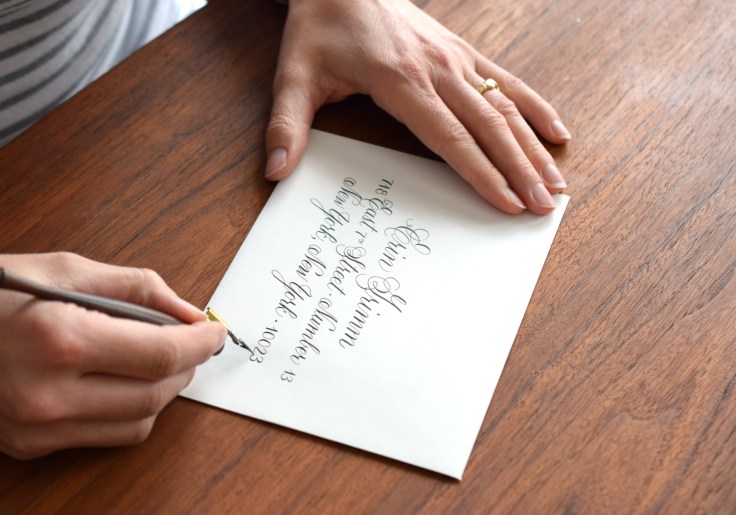 Erin Grimm
718 East 7th Street · Number 13
New York, New York · 10023